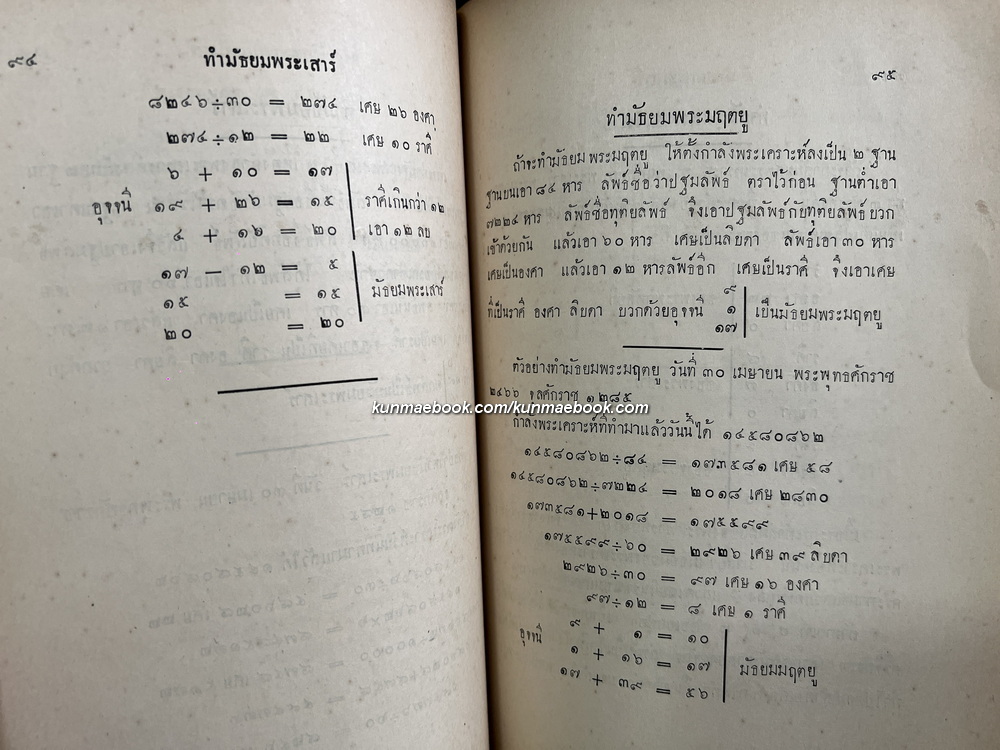 ๙๔
ทำมัธยมพระเสาร์
๘๒๔๖÷๓๐ = ๒๗๔ เศษ ๒๖ องศา
๒๗๔÷๑๒ = ๒๒ เศษ ๑๐ ราศี
๖ + ๑๐ = ๑๗ ราศีเกินกว่า ๑๒
อุจจนี ๑๙ + ๒๖ = ๑๕
๔ + ๑๖ = ๒๐ เอา ๑๒ ลบ
๑๗ – ๑๒ = ๕
๑๕ = ๑๕ มัธยมพระเสาร์
๒๐ = ๒๐
๙๕
ทำมัธยมพระมฤตยู
ถ้าจะทำมัธยมพระมฤตยู ให้ตั้งกำลังพระเคราะห์ลงเป็น ๒ ฐาน
ฐานบนเอา ๘๔ หาร ลัพธ์ชื่อว่าปฐมลัพธ์ ตราไว้ก่อน ฐานต่ำเอา
๗๒๒๔ หาร ลัพธ์ชื่อทุทิยลัพธ์ จึงเอาปฐมลัพธ์กับทุทิยลัพธ์บวก
เข้าด้วยกัน แล้วเอา ๖๐ หาร เศษเป็นลิบดา ลัพธ์เอา ๓๐ หาร
เศษเป็นองศา แล้วเอา ๑๒ หารลัพธ์อีก เศษเป็นราศี จึงเอาเศษ
๙
ที่เป็นราศี องศา ลิบดา บวกด้วยอุจจนี ๑ เป็นมัธยมพระมฤตยู
๑๗
ตัวอย่างทำมัธยมพระมฤตยู วันที่ ๓๐ เมษายน พระพุทธศักราช
๒๔๖๖ จุลศักราช ๑๒๘๕
kunmaebook.com/kunmaebook.com
กำลังพระเคราะห์ที่ทำมาแล้ววันนี้ได้ ๑๔๕๘๐๘๖๒
๑๔๕๘๐๘๖๒÷๘๔ = ๑๗๓๕๘๑ เศษ ๕๘
๑๔๕๘๐๘๖๒÷๗๒๒๔ = ๒๐๑๘ เศษ ๒๘๓๐
๑๗๓๕๘๑+๒๐๑๘ = ๑๗๕๕๙๙
๑๗๕๕๙๙÷๖๐ = ๒๙๒๖ เศษ ๓๙ ลิบดา
๒๙๒๖÷๓๐ = ๙๗ เศษ ๑๖ องศา
๙๗÷๑๒ = ๘ เศษ ๑ ราศี
๙ + ๑ = ๑๐
อุจจนี ๑ + ๑๖ = ๑๗ มัธยมมฤตยู
๑๗ + ๓๙ = ๕๖